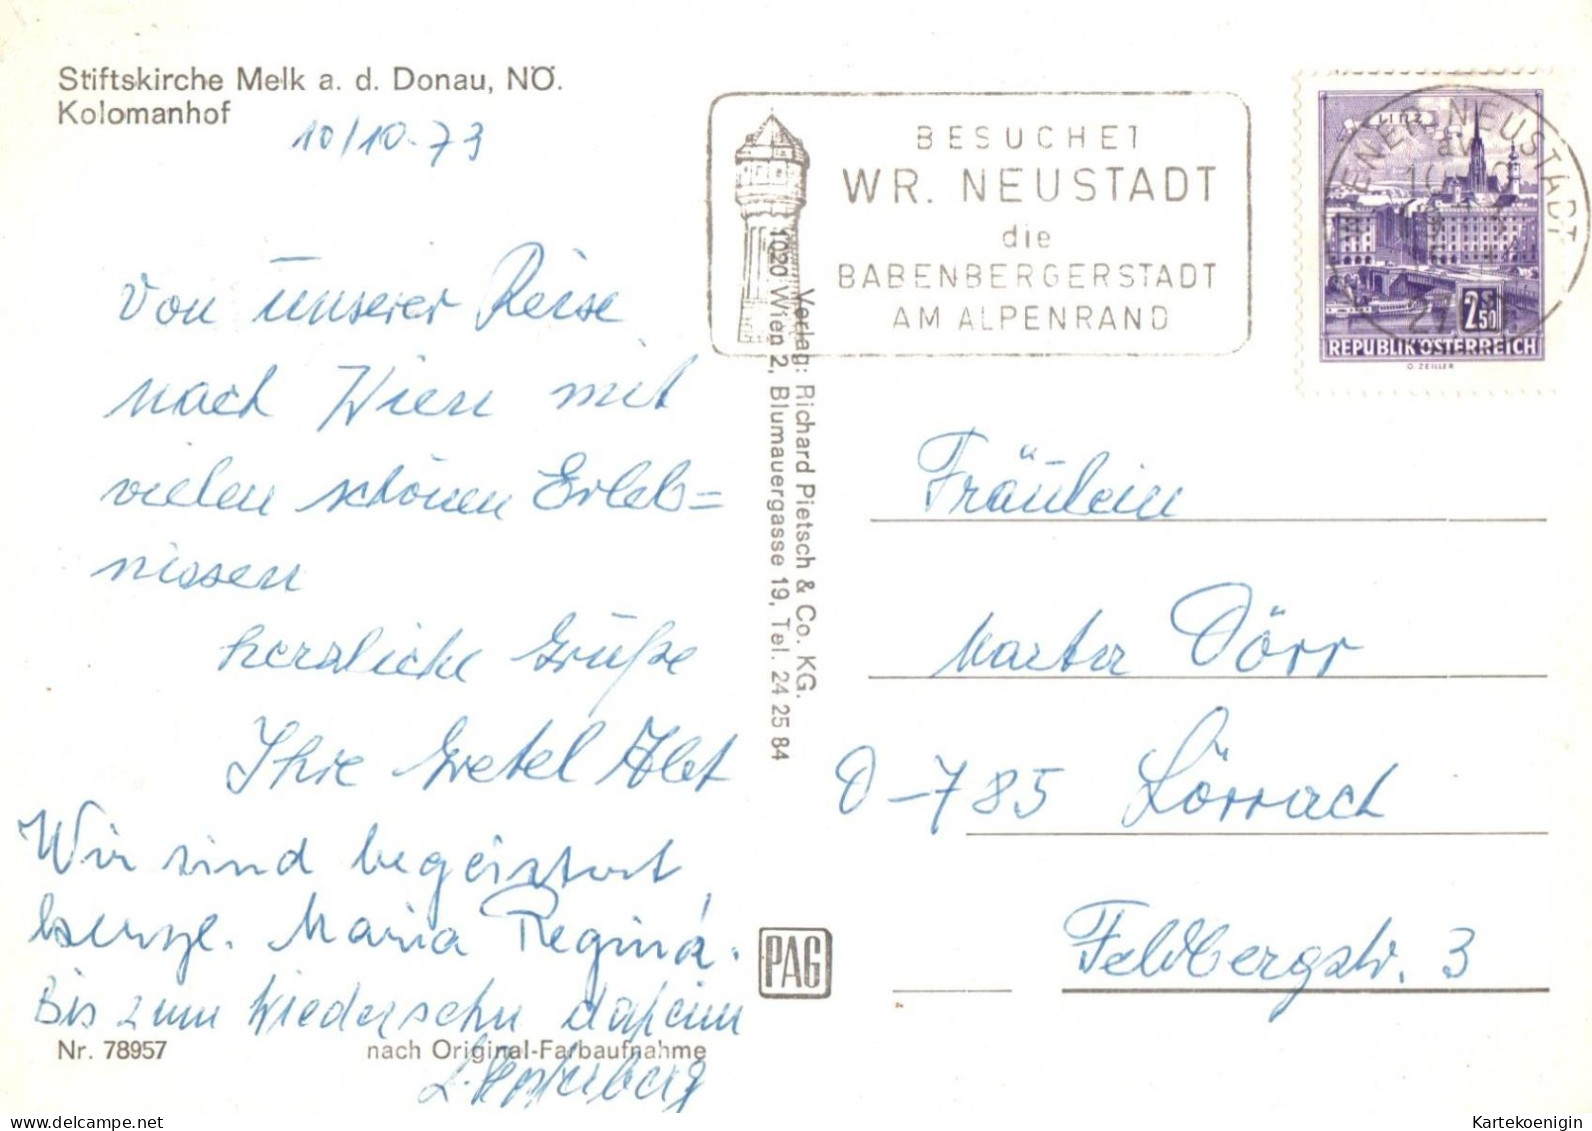 Stiftskirche Melk a. d. Donau, NÖ.
Kolomanhof
10/10.73
Von unserer Reise
nach Wien mit
vielen schönen Erleb=
nissen
herzliche Grüße
Ihre Gretel Abt
Wir sind begeistert
herzl. Maria Regina.
Bis zum Wiedersehn daheim
Nr. 78957
nach Original-Farbaufnahme
Verlag: Richard Pietsch & Co. KG.
1020 Wien 2, Blumauergasse 19, Tel. 24 25 84
PAG
BESUCHET
WR. NEUSTADT
die
BABENBERGERSTADT
AM ALPENRAND
LINZ
2 50
REPUBLIK ÖSTERREICH
O. ZEILLER
WIENER NEUSTADT
Fräulein
Dörr
D-785 Lörrach
Feldbergstr. 3
Kartekoenigin